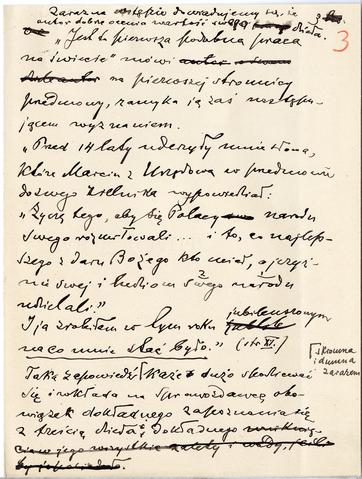 Zaraz na wstępie dowiadujemy się, że
autor dobrze ocenia wartość swego dzieła.
3
„Jest to pierwsza podobna praca
na świecie” mówi
na pierwszej stronicy
przedmowy, zamyka ją zaś następu-
jącem wyznaniem.
„Przed 14 laty uderzyły mnie słowa,
które Marcin z Urzędowa w przedmowie
do swego Zielnika wypowiedział:
„Życzę tego, aby się Polacy narodu
swego rozmiłowali... i to, co najlep-
szego z daru Bożego kto miał, ojczyź-
nie swej i ludziom swego narodu
udzielali.”
I ja zrobiłem w tym roku jubileuszowym
na co mnie stać było.” (str. XI.)
skromna
i dumna
zarazem
Taka zapowiedź każe dużo spodziewać
się i wkłada na sprawozdawcę obo-
wiązek dokładnego zapoznania się
z treścią dzieła, dokładnego
wszystkie zalety i wady,